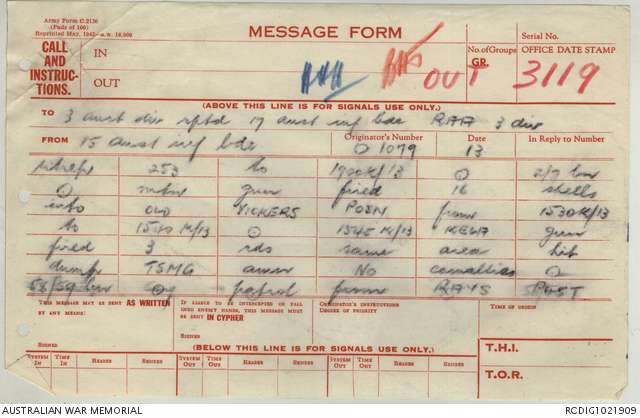 Army Form C.2136
(Pads of 100)
Reprinted May, 1942
MESSAGE FORM
Serial No.
CALL
AND
INSTRUC-
TIONS.
IN
OUT
No. of Groups
GR.
OFFICE DATE STAMP
OUT 3119
(ABOVE THIS LINE IS FOR SIGNALS USE ONLY.)
TO 3 aust div rptd 17 aust inf bde RAA 3 div
FROM 15 aust inf bde
Originator's Number
Date
In Reply to Number
O 1079 13
sitrep 253 to 1700K/13 O 2/7 bn
O mtn gun fired 16 shells
into OLD VICKERS POSN from 1530K/13
to 1540K/13 O 1545K/13 gun
fired 3 rds same area hit
dump TSMG ammn No casualties O
58/59 bn coy patrol from RAYS POST
THIS MESSAGE MAY BE SENT AS WRITTEN
BY ANY MEANS:
SIGNED
IF LIABLE TO BE INTERCEPTED OR FALL
INTO ENEMY HANDS, THIS MESSAGE MUST
BE SENT IN CYPHER
SIGNED
ORIGINATOR'S INSTRUCTIONS
DEGREE OF PRIORITY
TIME OF ORIGIN.
(BELOW THIS LINE IS FOR SIGNALS USE ONLY.)
T.H.I.
T.O.R.
SYSTEM IN TIME IN READER SENDER SYSTEM OUT TIME OUT READER SENDER SYSTEM OUT TIME OUT READER SENDER
AUSTRALIAN WAR MEMORIAL
RCDIG1021909